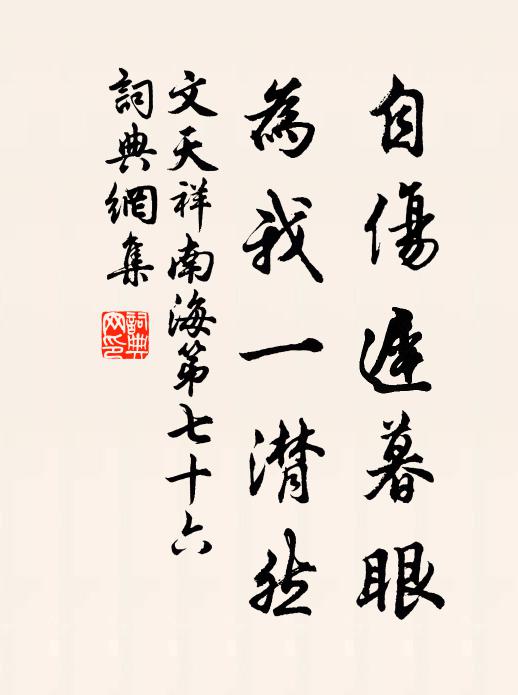 自傷遲暮眼
為我一潸然
文天祥南海第七十六
詞典網集
詞典網印